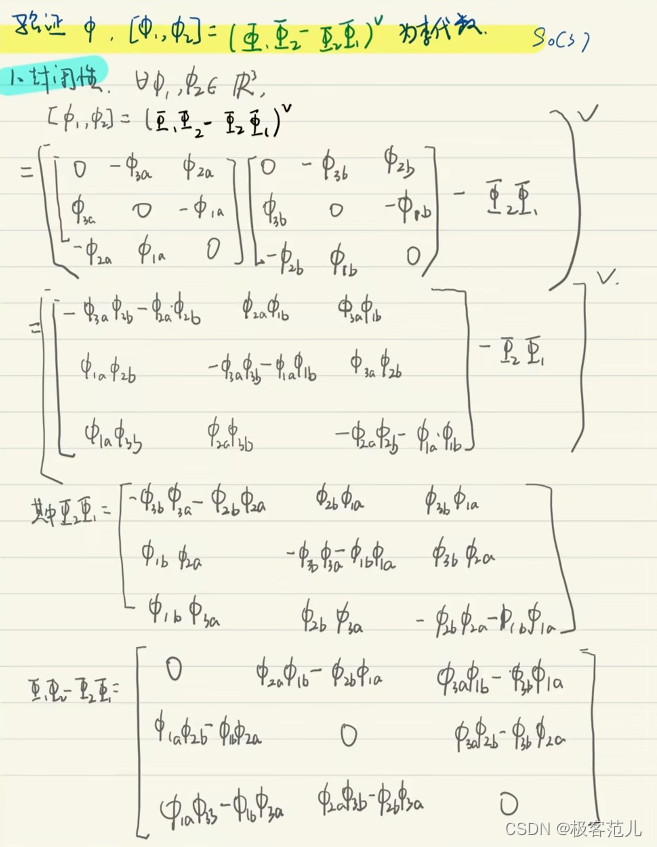 验证 φ, [φ₁,φ₂] = (Φ₁Φ₂ - Φ₂Φ₁)^∨ 为李代数. so(3)
1. 封闭性. ∀φ₁,φ₂∈ℝ³,
[φ₁,φ₂] = (Φ₁Φ₂ - Φ₂Φ₁)^∨
= [ [ 0 -φ3a φ2a ] [ 0 -φ3b φ2b ]
φ3a 0 -φ1a φ3b 0 -φ1b - Φ₂Φ₁ ]^∨
-φ2a φ1a 0 -φ2b φ1b 0
= [ [ -φ3aφ2b-φ2a·φ2b φ2aφ1b φ3aφ1b ]
φ1aφ2b -φ3aφ3b-φ1aφ1b φ3aφ2b - Φ₂Φ₁ ]^∨.
φ1aφ3b φ2aφ3b -φ2aφ2b-φ1a·φ1b
其中Φ₂Φ₁ = [ -φ3bφ3a-φ2bφ2a φ2bφ1a φ3bφ1a
φ1bφ2a -φ3bφ3a-φ1bφ1a φ3bφ2a
φ1bφ3a φ2bφ3a -φ2bφ2a-φ1bφ1a ]
Φ₁Φ₂-Φ₂Φ₁ = [ 0 φ2aφ1b-φ2bφ1a φ3aφ1b-φ3bφ1a
φ1aφ2b-φ1bφ2a 0 φ3aφ2b-φ3bφ2a
φ1aφ3b-φ1bφ3a φ2aφ3b-φ2bφ3a 0 ]
CSDN @极客范儿